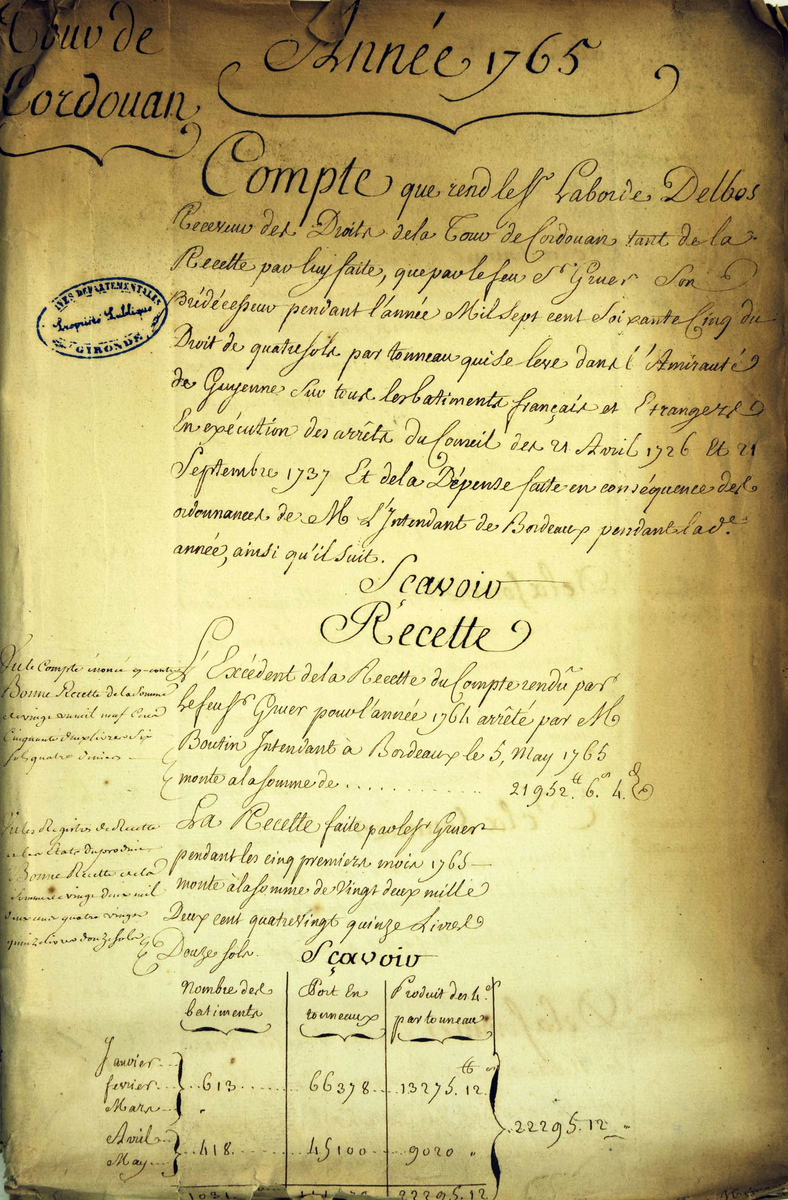 Tour de
Cordouan
Année 1765
Compte que rend le Sr. Laborde Delbos
Receveur des Droits de la Tour de Cordouan tant de la
Recette par luy faite, que par le feu Sr. Gruer Son
Prédécesseur pendant l'année Mil Sept cent Soixante Cinq du
Droit de quatre sols par tonneau qui se leve dans l'Amirauté
de Guyenne Sur tous les batiments français et Etrangers
En exécution des arrêts du Conseil des 21 Avril 1726 Et 21
Septembre 1737 Et de la Dépense faite en conséquence des
ordonnances de M. L'Intendant de Bordeaux pendant lad.e
année, ainsi qu'il suit.
Sçavoir
Recette
ARCHIVES DEPARTEMENTALES
Propriété Publique
GIRONDE
Vu le Compte énoncé cy-contre
Bonne Recette de la somme
de vingt un mil neuf Cent
Cinquante deux livres Six
sols quatre deniers
L'Excédent de la Recette du Compte rendu par
le feu Sr. Gruer pour l'année 1764 arrêté par M.
Boutin Intendant à Bordeaux le 5, May 1765
monte a la somme de .......... 21952.tt 6.s 4.d
Vu les Registres de Recette
et les Etats du produit
Bonne Recette de la
Somme de vingt deux mil
deux cent quatre vingt
quinze livres douze sols
La Recette faite par le Sr. Gruer
pendant les cinq premiers mois 1765
monte à la somme de Vingt deux mille
Deux cent quatre Vingt quinze Livres
Douze sols. Sçavoir
Nombre des batiments Port En tonneaux Produit des 4.s par tonneau
Janvier
fevrier 613 66378 13275.tt 12.s
Mars
22295.12 "
Avril 418 45100 9020 "
May
1031 22295.12